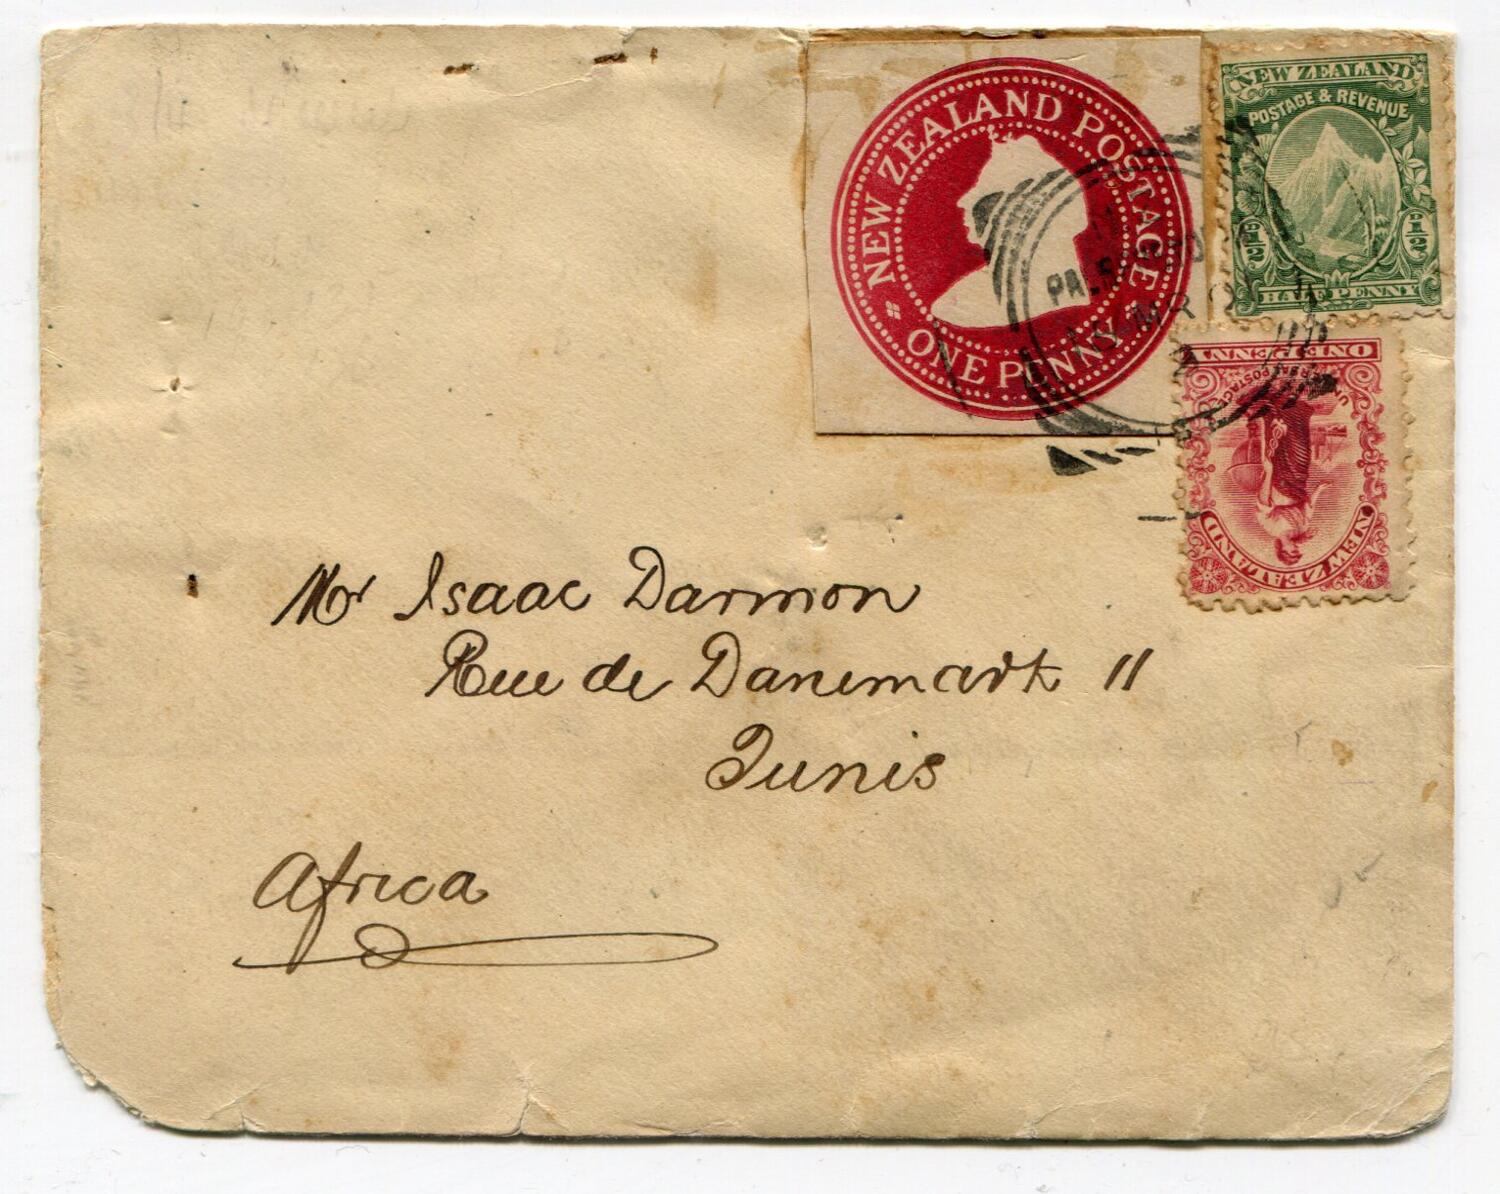 NEW ZEALAND POSTAGE
ONE PENNY
NEW ZEALAND
POSTAGE & REVENUE
D 1/2
D 1/2
HALF PENNY
ONE PENNY
UNIVERSAL POSTAGE
NEW ZEALAND
Mr Isaac Darmon
Rue de Danemark 11
Tunis
Africa